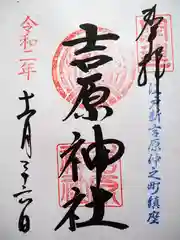 奉拝
新吉原仲之町鎮座
吉原神社
令和二年
十一月二十六日